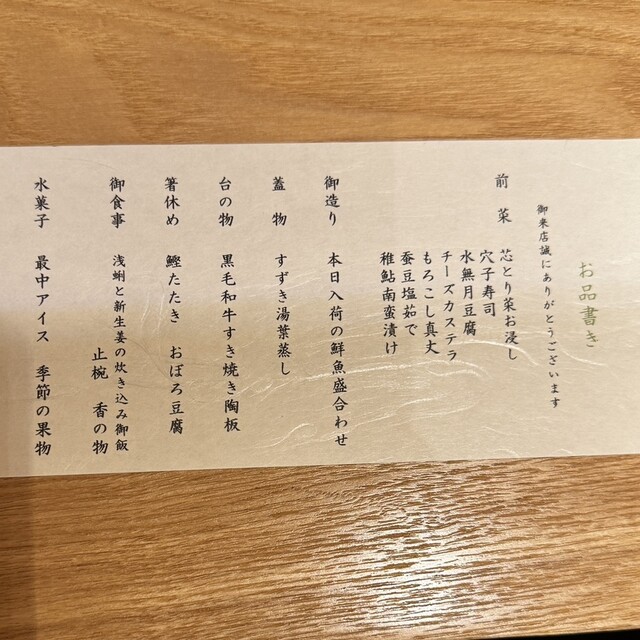 お品書き
御来店誠にありがとうございます
前菜 芯とり菜お浸し
穴子寿司
水無月豆腐
チーズカステラ
もろこし真丈
蚕豆塩茹で
稚鮎南蛮漬け
御造り 本日入荷の鮮魚盛合わせ
蓋物 すずき湯葉蒸し
台の物 黒毛和牛すき焼き陶板
箸休め 鰹たたき おぼろ豆腐
御食事 浅蜊と新生姜の炊き込み御飯
止椀 香の物
水菓子 最中アイス 季節の果物